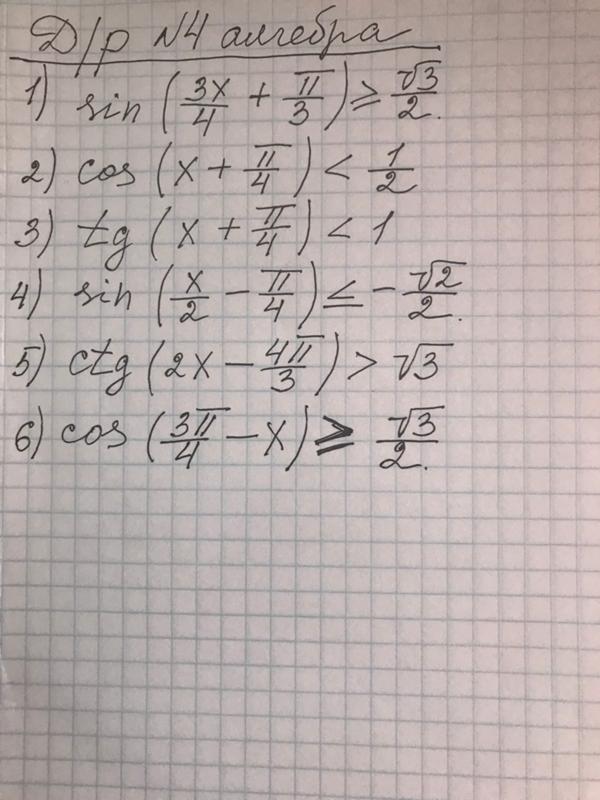 Д/р N4 алгебра
1) sin (3x/4 + π/3) ≥ √3/2.
2) cos (x + π/4) < 1/2
3) tg (x + π/4) < 1
4) sin (x/2 - π/4) ≤ - √2/2.
5) ctg (2x - 4π/3) > √3
6) cos (3π/4 - x) ≥ √3/2.